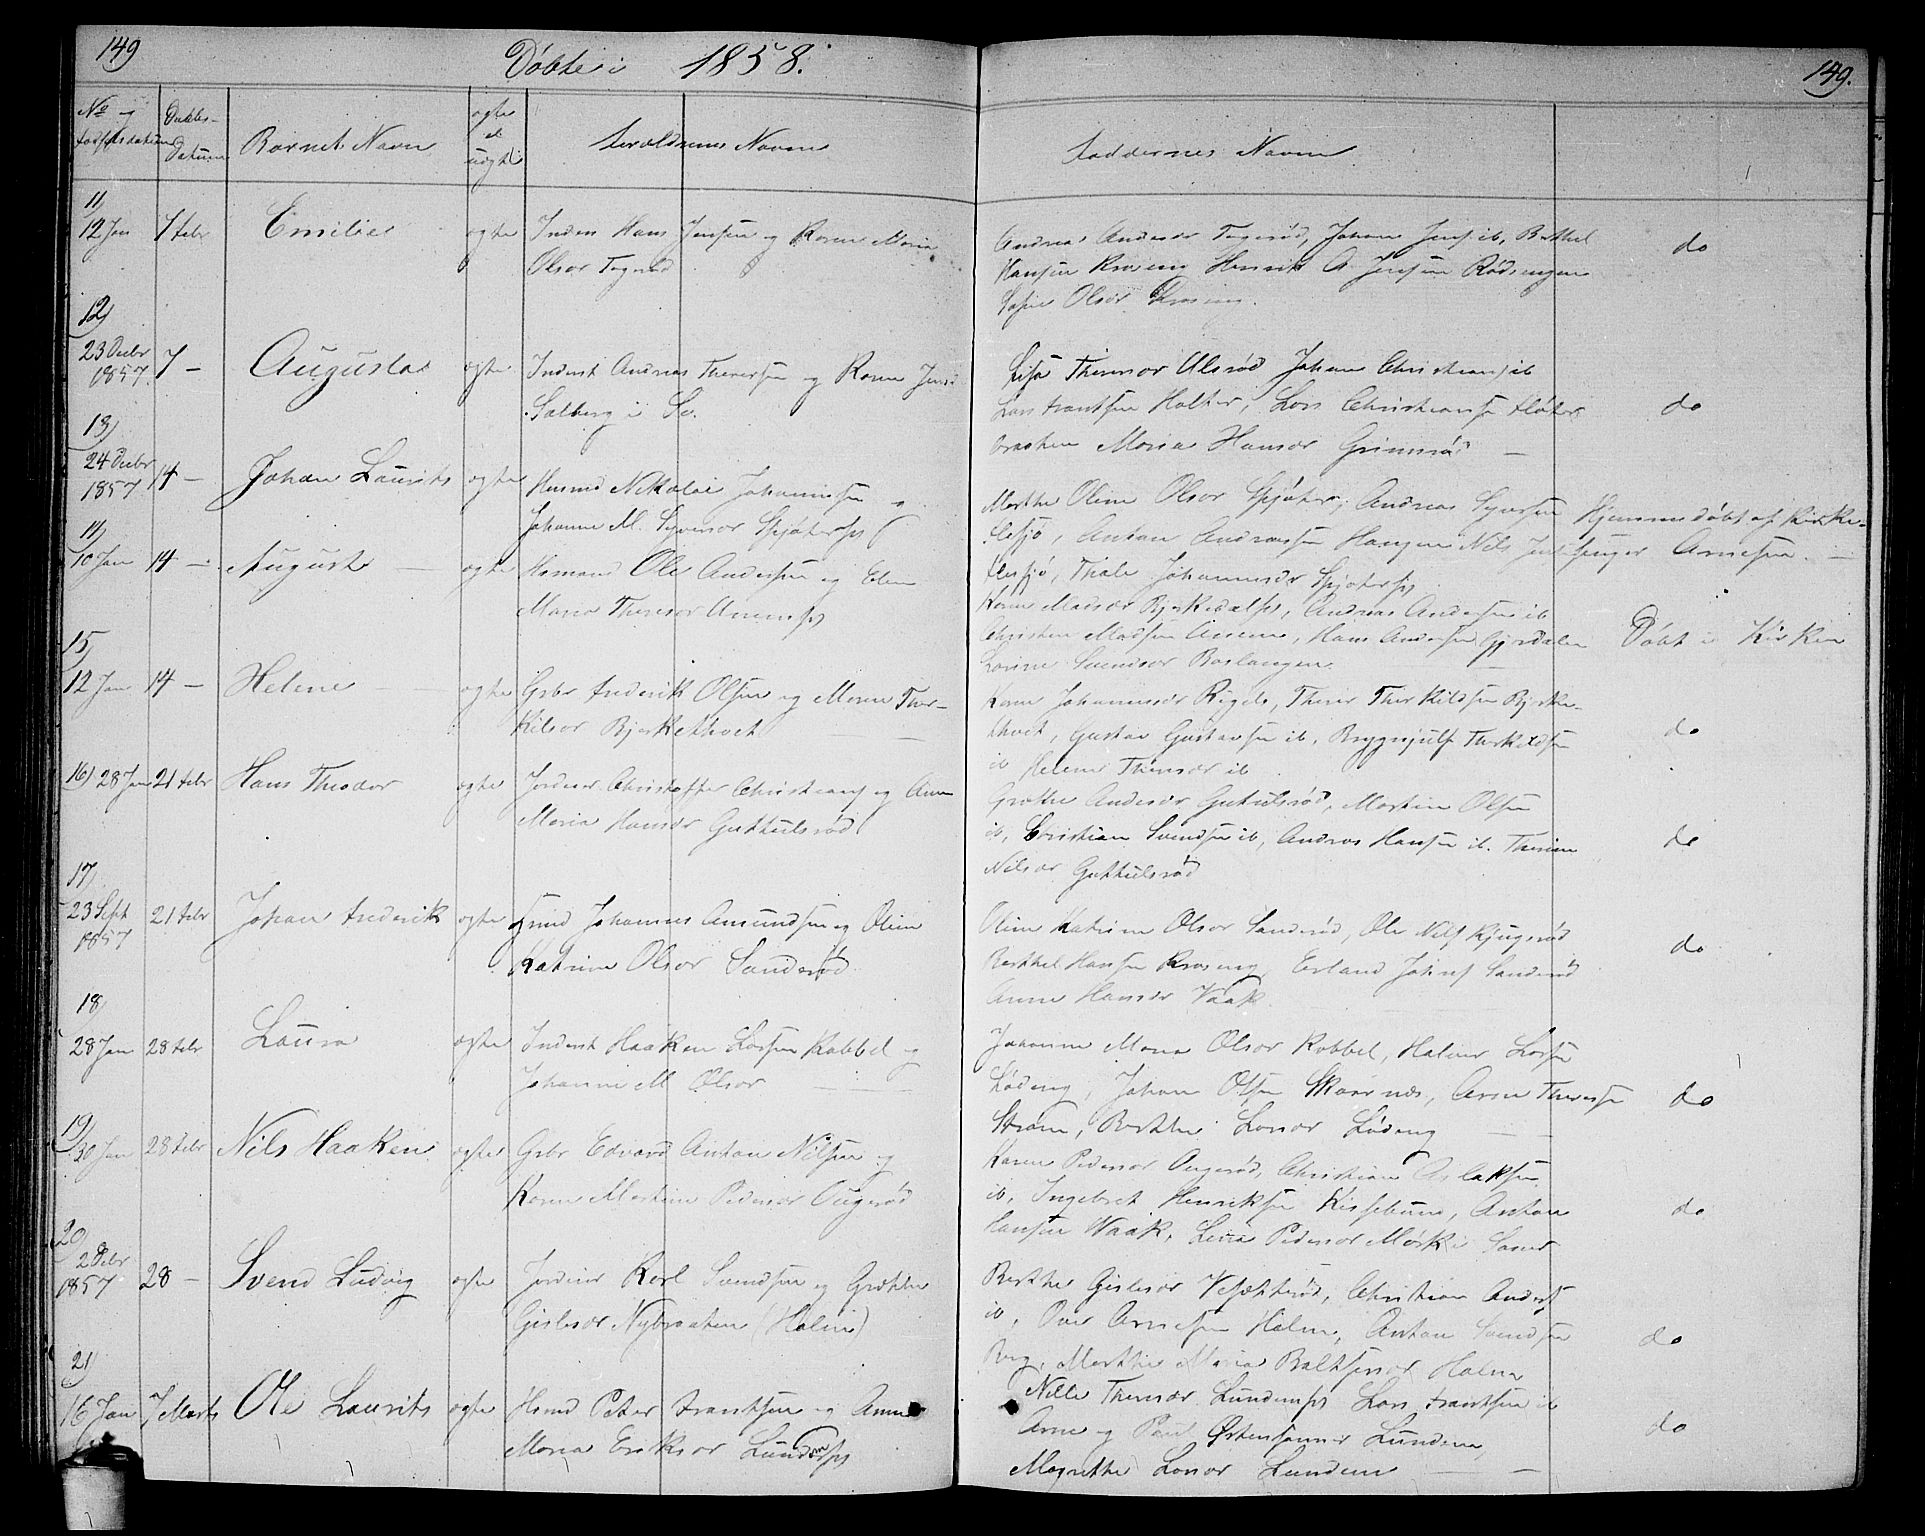 149
Døbte i 1858.
149.
No og fødselsdatum
Daabs-
Datum
Barnets Navn
ægte
el
uægte
Forældrenes Navne
Faddernes Navne
11)
12 Jan 7 Febr Emilie ægte Inders Hans Jensen og Karen Maria
Olsdr Tagerød
Andrea Andersdr Tagerød, Johan Jens. ib, Berthel
Hansen Krosing Henrik A. Jensen Rødsengen
Sofie Olsdr Krosing.
do
12)
23 Decbr
1857. 7 – Augusta ægte Inderst Andreas Theresen og Karen Jensd
Salberg i So.
Thersdr Ulsrød Johan Christians ib
Lars Frantsen Holter, Lars Christiansen Fløter
braaten Maria Hansdr Grimsrød –
do
13)
24 Decbr
1857 14 – Johan Laurits ægte Husmd Nikolai Johannesen og
Johanne M. Syversdr Spjøterspl
Marthe Oline Olsdr Spjøter, Andreas Syversen
Elsjø, Anton Andreassen Haugen Nils Jensen
Elesjø, Thale Johannesdr Spjøterspl
Hjemmedøbt af Kirke-
sanger Arnesen. –
14)
10 Jan 14 – August – ægte Husmand Ole Andersen og Elen
Maria Theresdr Anemspl
Karen Madsdr Bjerkedalspl, Andreas Andersen ib
Christen Madsen Aneme, Hans Andersen Gjerdalen
Lovine Svendsdr Baslangen
Døbt i Kirken
15)
12 Jan 14 – Helene – ægte Grbr Frederik Olsen og Maren Ther-
kilsdr Bjerkethvet –
Karen Johannesdr Rigels, Therer Therkildsen Bjerke-
thvet, Gustav Gustavsen ib, Brygnjulf Therkeldsen
ib Helene Thersdr ib
do
16) 28 Jan 21 Febr Hans Theodor ægte Jordeier Christoffer Christians og Anne
Maria Hansdr Guttulsrød
Grethe Andersdr Gutulsrød, Martin Olsen
ib, Christian Svendsen ib, Andreas Hansen ib. Therine
Nilsdr Guttulsrød
do
17)
23 Sept
1857 21 Febr Johan Frederik ægte Grmd Johannes Amundsen og Oline
Katrine Olsdr Sanderød
Oline Katrine Olsdr Sanderød, Ole Nils Kjugsrød
Berthel Hansen Krosing, Erland Johns Sanderød
Anne Hansdr Vaak
do
18)
28 Jan 28 Febr Laura ægte Inderst Haaken Larsen Kabbel og
Johanne M Olsdr –
Johanne Maria Olsdr Kabbel, Halvor Larsen
Løding, Johan Olsen Skaarnæs, Arne Theresen
Strøm, Berthe Larsdr Løding –
do
19)
30 Jan 28 Febr Nils Haaken ægte Grbr Edvard Anton Nilsen og
Karen Martine Pedersdr Augerød
Karen Pedersdr Augerød, Christian Aslaksen
ib, Ingebret Henriksen Kissebune, Anton
Hansen Waak, Lina Pedersdr Mørk i Saner
do
20)
2 Decbr
1857 28 – Svend Ludvig ægte Jordeier Karl Svendsen og Grethe
Gislesdr Nybraaten (Holm)
Berthe Gislesdr Veseterød, Christian Anders
ib, Ove Arnesen Holm, Anton Svendsen
Berg, Marthe Maria Baltsersdr Holm
do
21)
16 Jan 7 Marts Ole Laurits ægte Husmd Peter Frantsen og Anne
Maria Eriksdr Lundemspl
Nille Thersdr Lundemspl Lars Frantsen ib
Arne og Paul Østensønner Lundem,
Magrethe Larsdr Lundem –
do